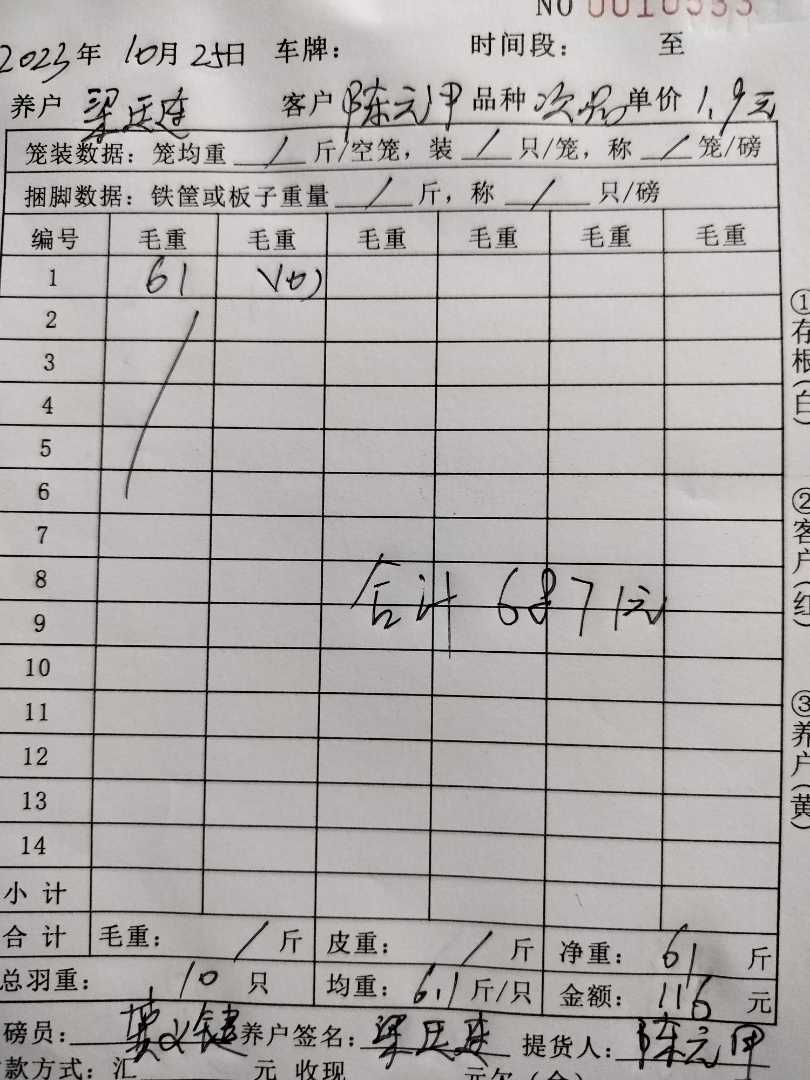 NO 0010533
2023年 10月25日 车牌： 时间段： 至
养户 梁廷连 客户 陈元甲 品种 次品 单价 1.9元
笼装数据：笼均重 / 斤/空笼，装 / 只/笼，称 / 笼/磅
捆脚数据：铁筐或板子重量 / 斤，称 / 只/磅
编号 毛重 毛重 毛重 毛重 毛重 毛重
1 61 (10)
2
3
4
5
6
7
8
合计 6871元
9
10
11
12
13
14
小计
合计 毛重： / 斤 皮重： / 斤 净重： 61 斤
总羽重： 10 只 均重： 6.1 斤/只 金额： 116 元
磅员： 养户签名： 梁廷连 提货人： 陈元甲
款方式：汇 元 收现 元欠(余)
①存根(白) ②客户(红) ③养户(黄)